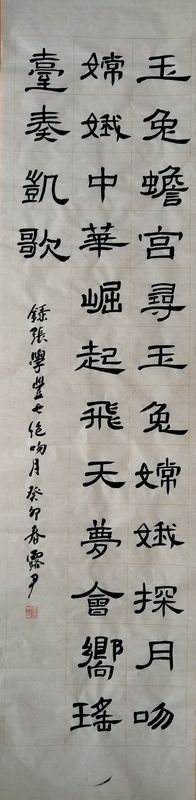 玉兔蟾宫尋玉兔嫦娥探月吻
嫦娥中華崛起飛天夢會嚮瑤
臺奏凱歌
録張學豊七绝吻月癸卯春露尹